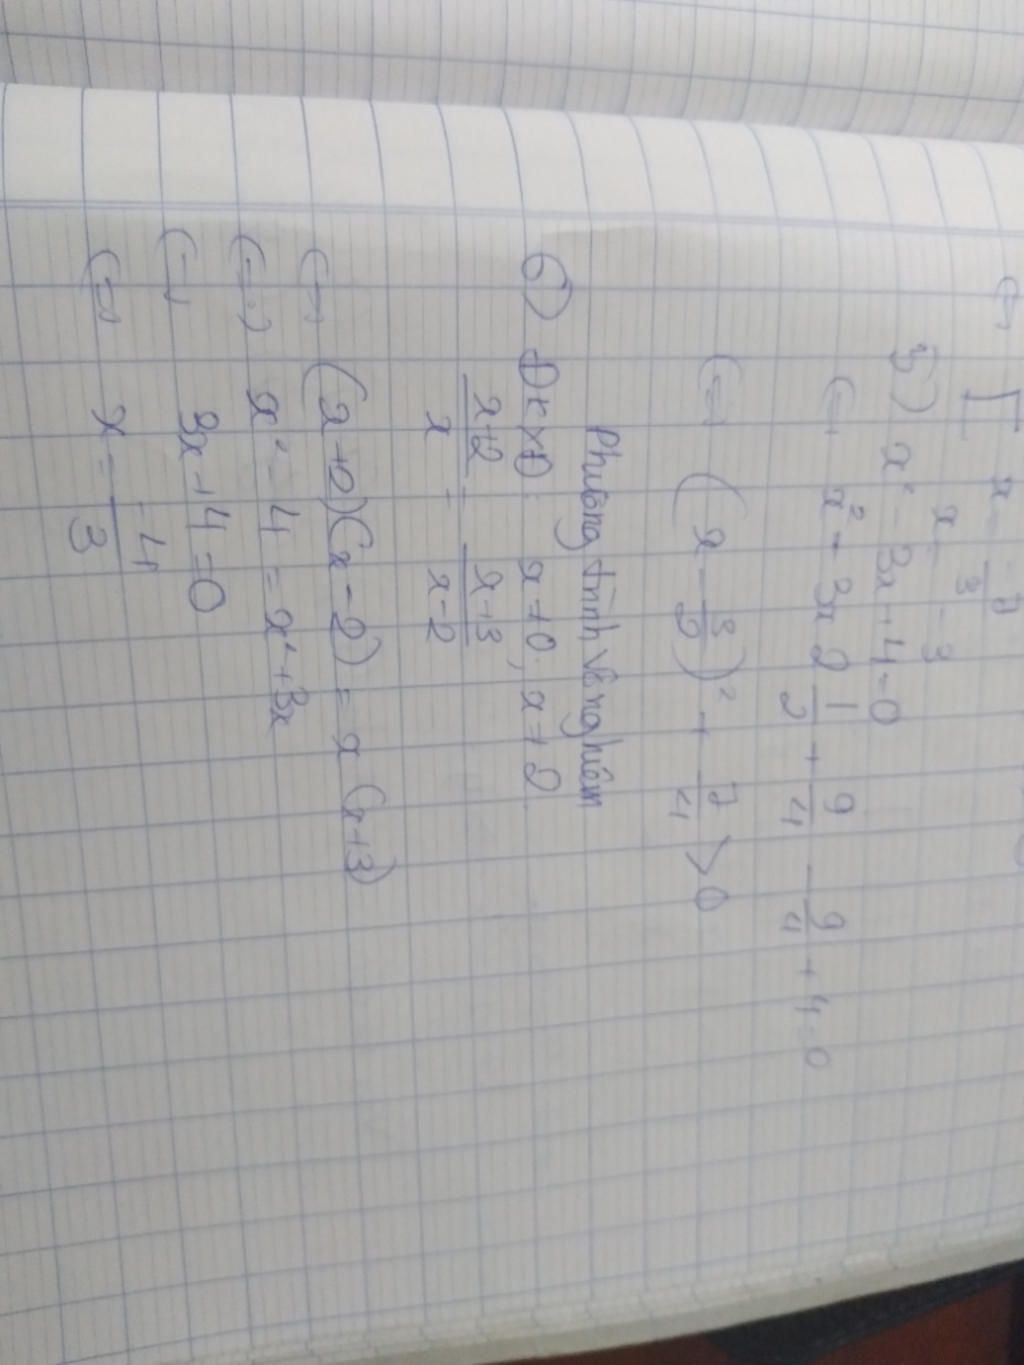 (=) [ x = -7/3
x = -3
5) x² - 3x + 4 = 0
(=) x² - 3x 2 1/2 + 9/4 - 9/4 + 4 = 0
(=) (x - 3/2)² + 7/4 > 0
Phương trình vô nghiệm
6) ĐKXĐ: x ≠ 0, x ≠ 2
x+2/x = x+3/x-2
(=) (x+2)(x-2) = x(x+3)
(=) x² - 4 = x² + 3x
(=) 3x + 4 = 0
(=) x = -4/3